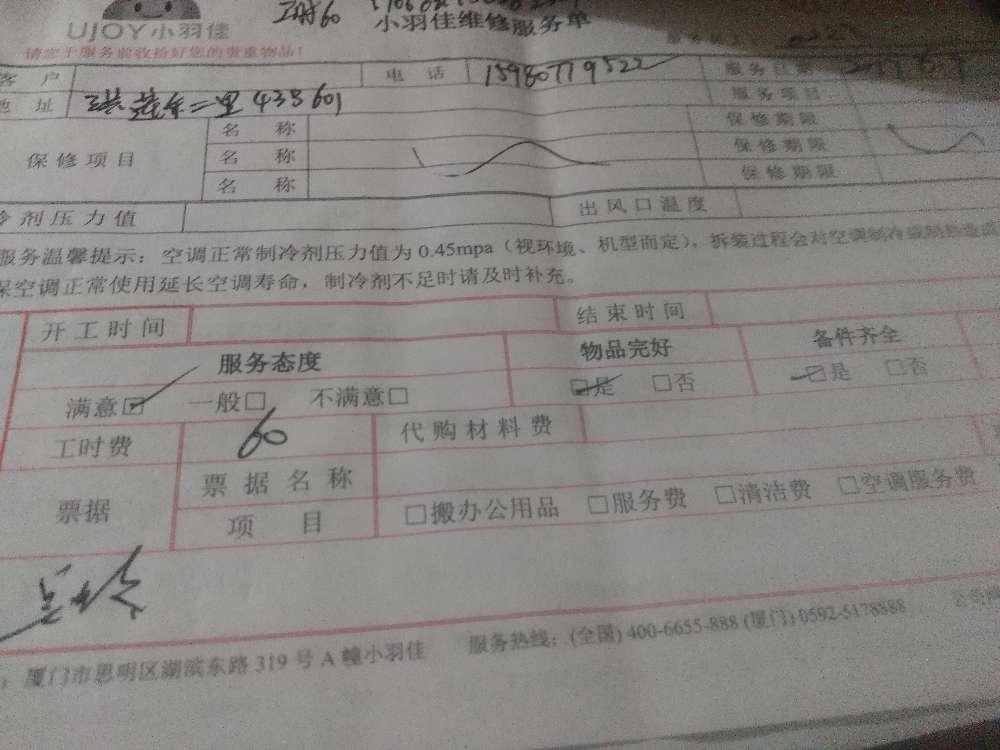 工时60
UJOY小羽佳
小羽佳维修服务单
请您于服务前收拾好您的贵重物品!
客 户
电 话 15980779522
服务日期
地 址 莲 二里 43号601
服务项目
保修项目
名 称
保修期限
名 称
保修期限
名 称
保修期限
冷剂压力值
出风口温度
服务温馨提示:空调正常制冷剂压力值为 0.45mpa(视环境、机型而定),拆装过程会对空调制冷
保空调正常使用延长空调寿命,制冷剂不足时请及时补充。
开工时间
结束时间
服务态度
物品完好
备件齐全
满意☑ 一般□ 不满意□
☑是 □否
☑是 □否
工时费 60
代购材料费
票据
票据名称
项 目
□搬办公用品 □服务费 □清洁费 □空调服务费
:厦门市思明区湖滨东路 319 号 A 幢小羽佳 服务热线:(全国) 400-6655-888 (厦门) 0592-5178888